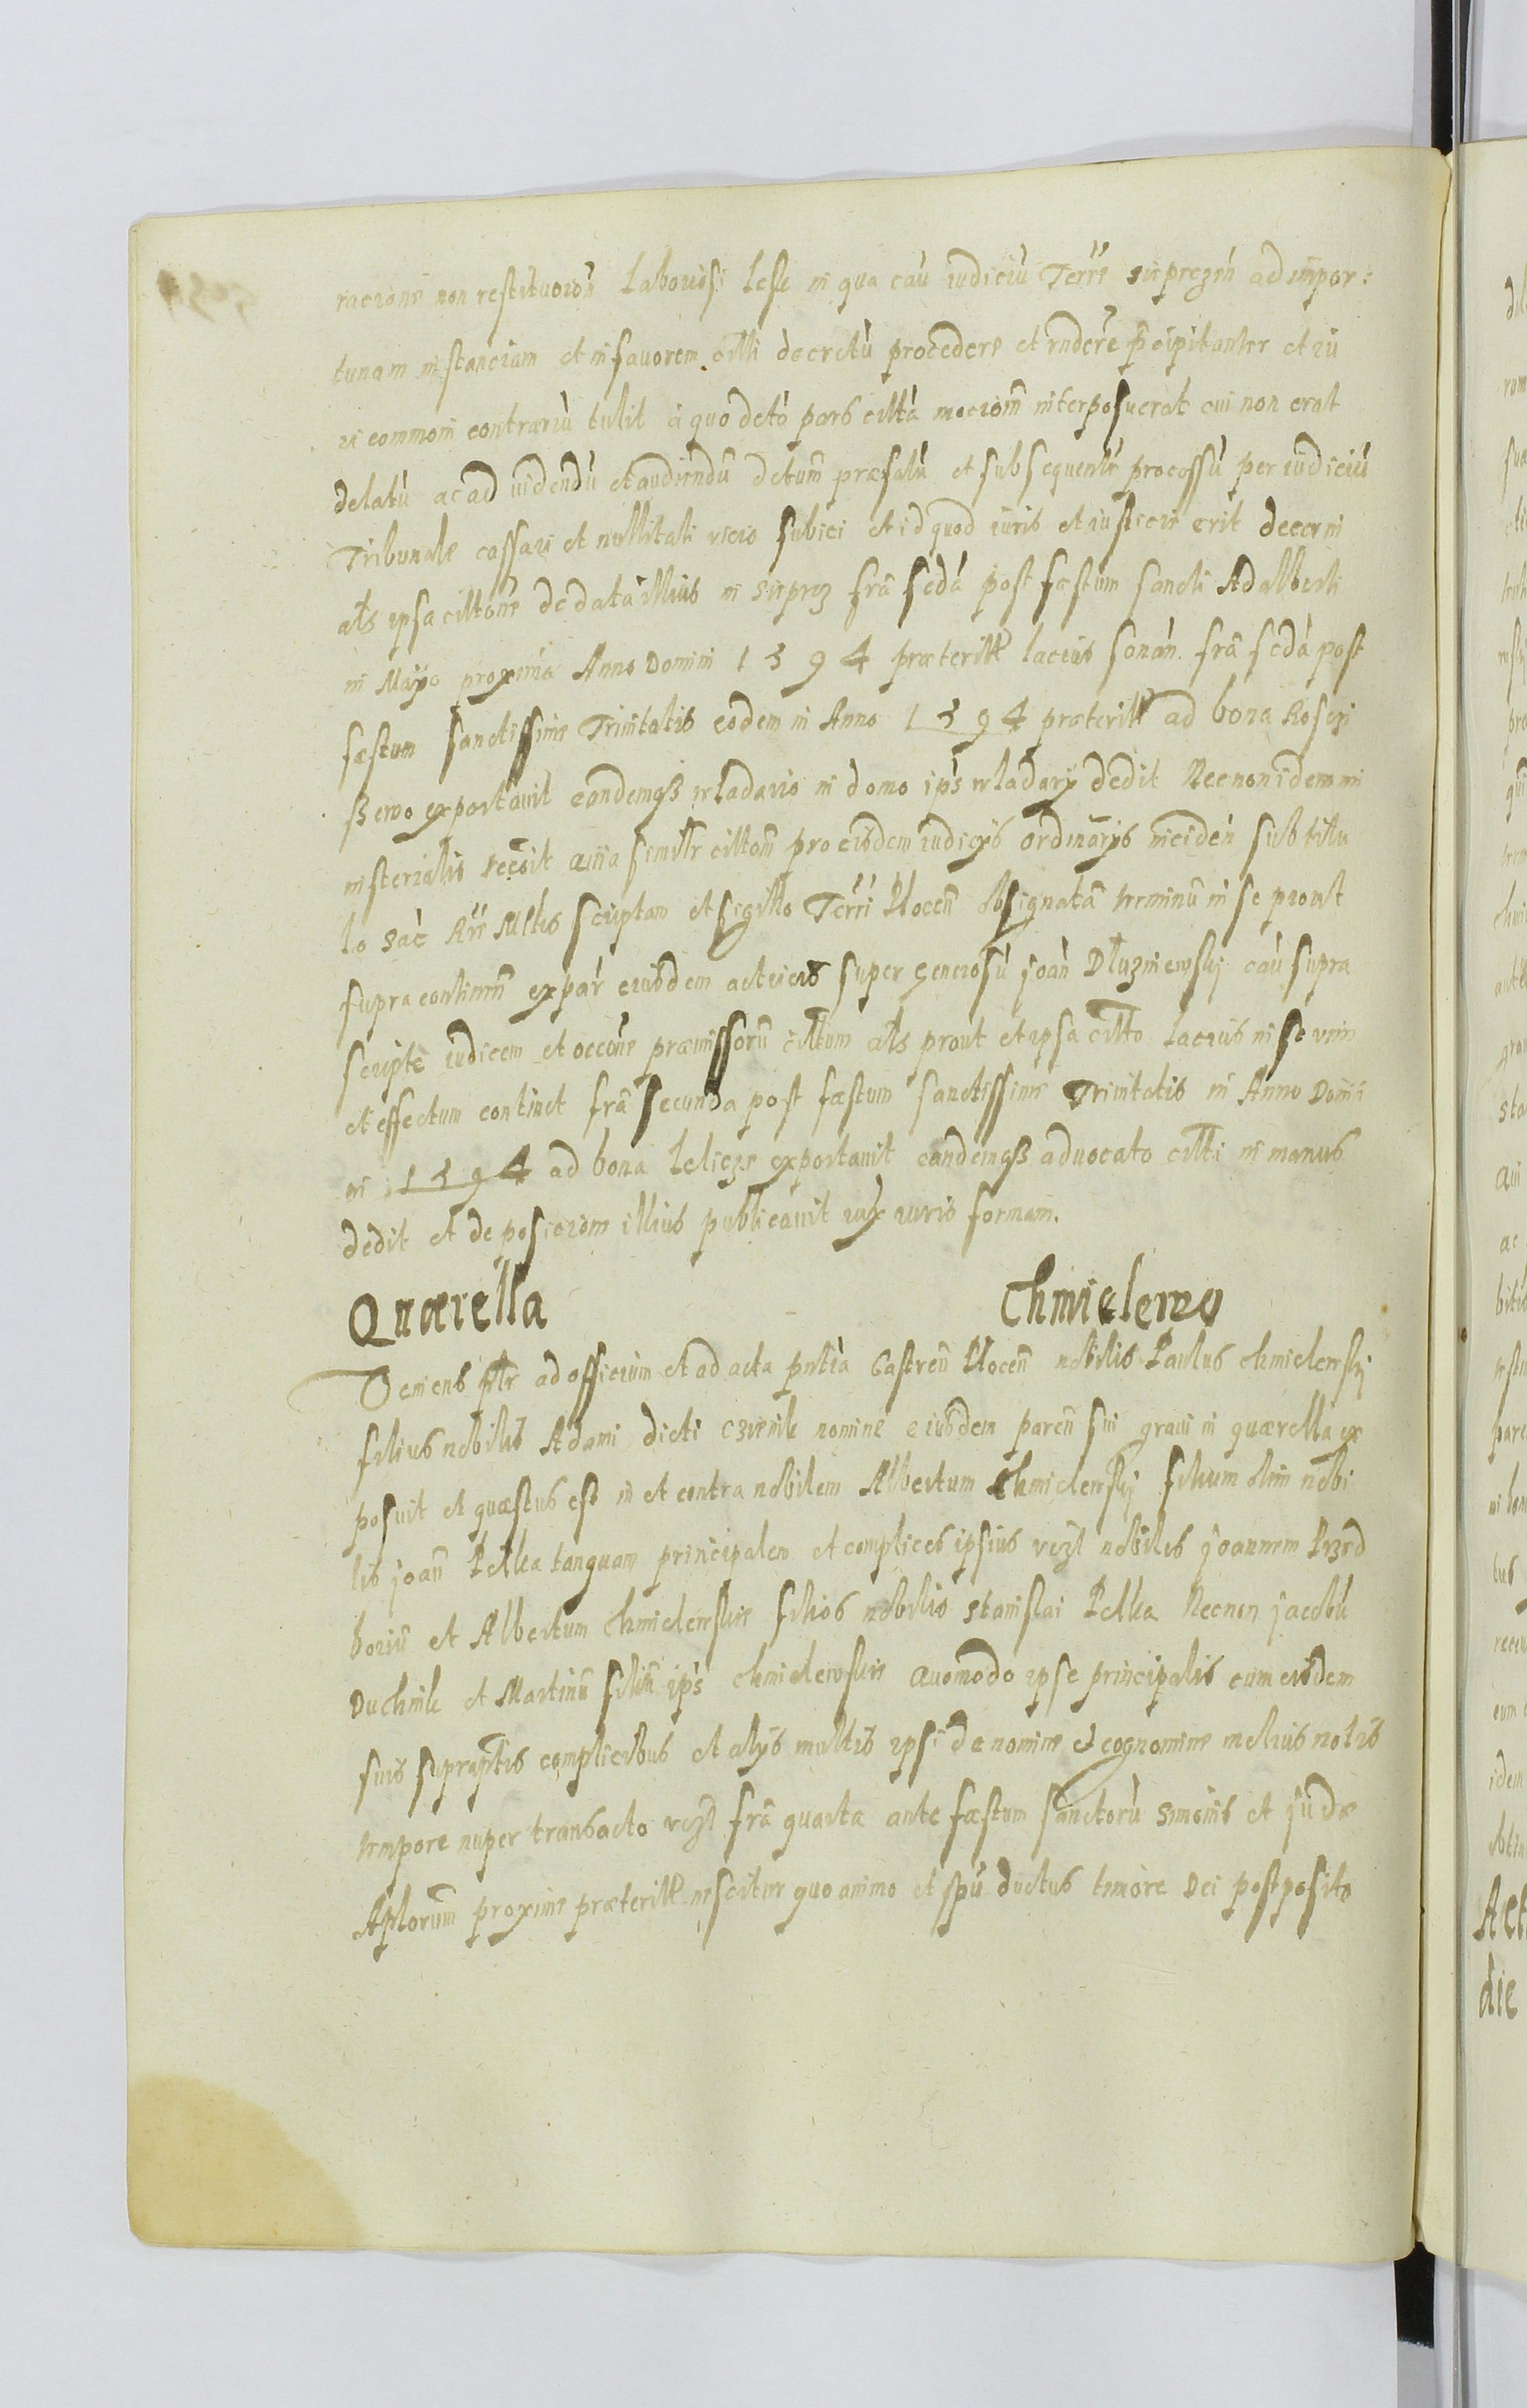 racione non restitucion Laboriosi Lesse in qua cau iudiciu Terre Sieprczen ad impor:
tunam instanciam et in fauorem citti decretu procedere et rndere pcipitanter et iu
ri commoni contrariu tulit a quo dcto pars citta mocionm interposuerat cui non erat
delatu ac ad uidendu et audiendu dctum præfatu et subsequente processu per iudiciu
Tribunale cassari et nullitati vicio subici et id quod iuris et iusticie erit decerni
als ipsa cittone de data illius in Sieprcz fra scda post fæstum sancti Adalberti
in Mayo proxima Anno Domini 1594 præteritte lacius sonan. fra scda post
fæstum sanctissime Trinitatis eodem in Anno 1594 præteritt ad bona Rosczi
ssewo exportauit eandemqß wladario in domo ips wladary dedit Necnon idem mi
nisterialis recoit quia similr cittom pro eisdem iudicys ordinarys inciden sub titu
lo Sac Rii Mttis scriptam et sigillo Terri Plocen obsignatã terminum in se prout
supra continen ex par eiusdem actricis super Generosu joan Dłuzniewskj cau supra
scripte iudicem et occone præmissoru cittum als prout et ipsa citto lacius in se vim
et effectum continet fra secunda post fæstum sanctissime Trinitatis in Anno Domi
ni 1594 ad bona Lelicze exportauit eandemqß aduocato citti in manus
dedit et deposiciom illius publicauit iux iuris formam.
Quærella Chmielewo
Veniens pstr ad officium et ad acta pntia Castren Plocen nobilis Paulus chmielewskj
filius nobilis Adami dicti czwenik nomine eiusdem paren sui graui in quærella ex
posuit et quæstus est in et contra nobilem Albertum Chmielewskj filium olim nobi
lis joan Pełka tanquam principalem et complices ipsius vczt nobiles joannem Przed
boriu et Albertum chmielewskie filios nobilis Stanislai Pełka Necnon jacobu
Duchnik et Martinu filiu ips chmielewskie Quomodo ipse principalis cum eisdem
suis suprasptis complicibus et alys multis ipsi de nomine et cognomine melius notis
tempore nuper transacto vczt fra quarta ante fæstum sanctoru Simonis et judæ
Aplorum proxime præteritt nescitur quo animo et spu ductus timore Dei postposito